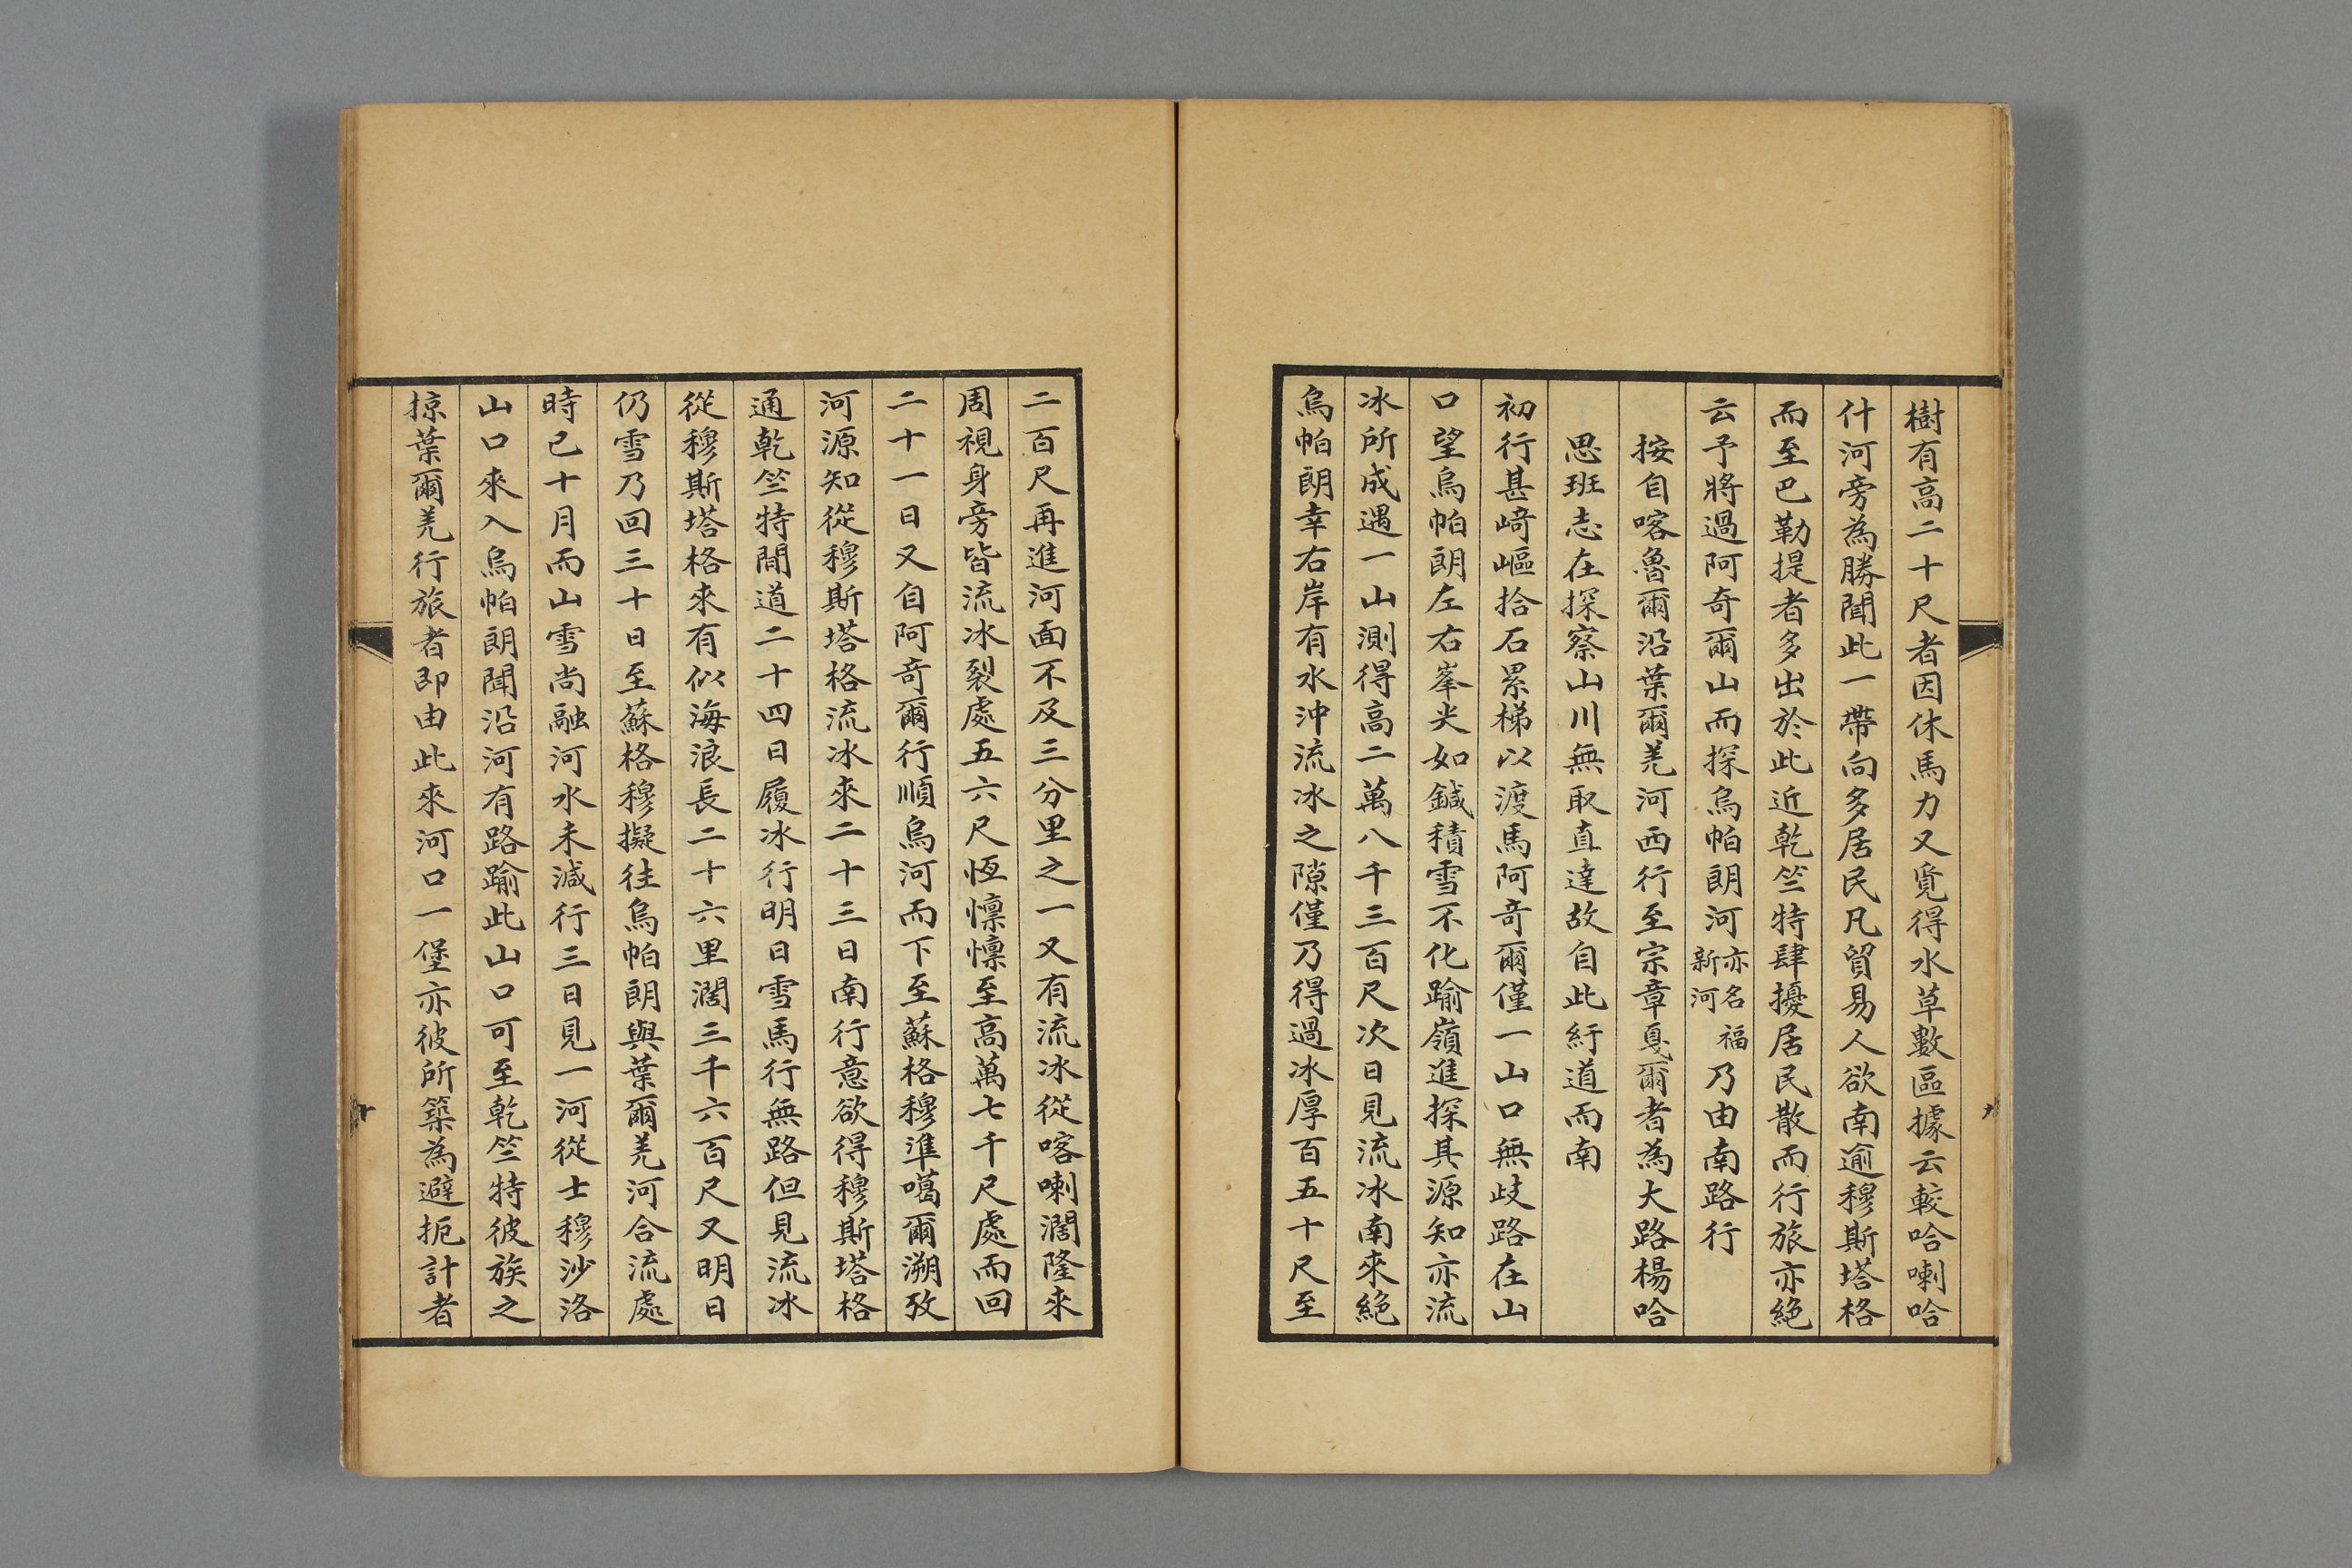 樹有高二十尺者因休馬力又覓得水草數區據云較哈喇哈
什河旁為勝聞此一帶向多居民凡貿易人欲南逾穆斯塔格
而至巴勒提者多出於此近乾竺特肆擾居民散而行旅亦絕
云予將過阿奇爾山而探烏帕朗河亦名福新河乃由南路行
按自喀魯爾沿葉爾羌河西行至宗章戛爾者為大路楊哈
思班志在探察山川無取直達故自此紆道而南
初行甚崎嶇拾石累梯以渡馬阿奇爾僅一山口無歧路在山
口望烏帕朗左右峯尖如鍼積雪不化踰嶺進探其源知亦流
冰所成遇一山測得高二萬八千三百尺次日見流冰南來絕
烏帕朗幸右岸有水沖流冰之隙僅乃得過冰厚百五十尺至
二百尺再進河面不及三分里之一又有流冰從喀喇濶隆來
周視身旁皆流冰裂處五六尺恆懍懍至高萬七千尺處而回
二十一日又自阿奇爾行順烏河而下至蘇格穆準噶爾溯攷
河源知從穆斯塔格流冰來二十三日南行意欲得穆斯塔格
通乾竺特間道二十四日履冰行明日雪馬行無路但見流冰
從穆斯塔格來有似海浪長二十六里濶三千六百尺又明日
仍雪乃回三十日至蘇格穆擬往烏帕朗與葉爾羌河合流處
時已十月而山雪尚融河水未減行三日見一河從士穆沙洛
山口來入烏帕朗聞沿河有路踰此山口可至乾竺特彼族之
掠葉爾羌行旅者即由此來河口一堡亦彼所築為避扼計者